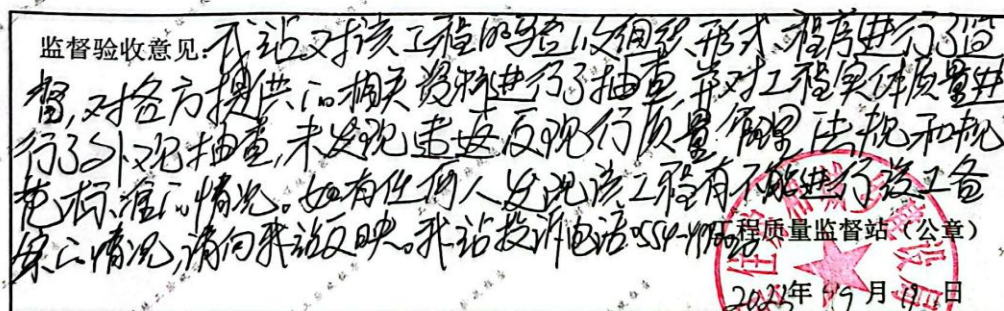 监督验收意见:我站对该工程的验收组织形式、程序进行了监
督,对各方提供的相关资料进行了抽查,并对工程实体质量进
行了外观抽查,未发现违反现行质量管理法规和规
范标准的情况。如有任何人发现该工程有不能进行竣工备
案的情况,请向我站反映。我站投诉电话:0554-
程质量监督站(公章)
年 9 月 日